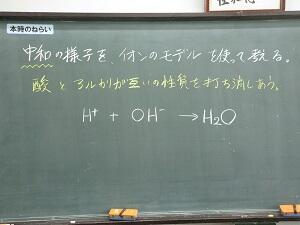 本時のねらい
中和の様子を、イオンのモデルを使って考える。
酸とアルカリが互いの性質を打ち消しあう。
H⁺ + OH⁻ → H₂O